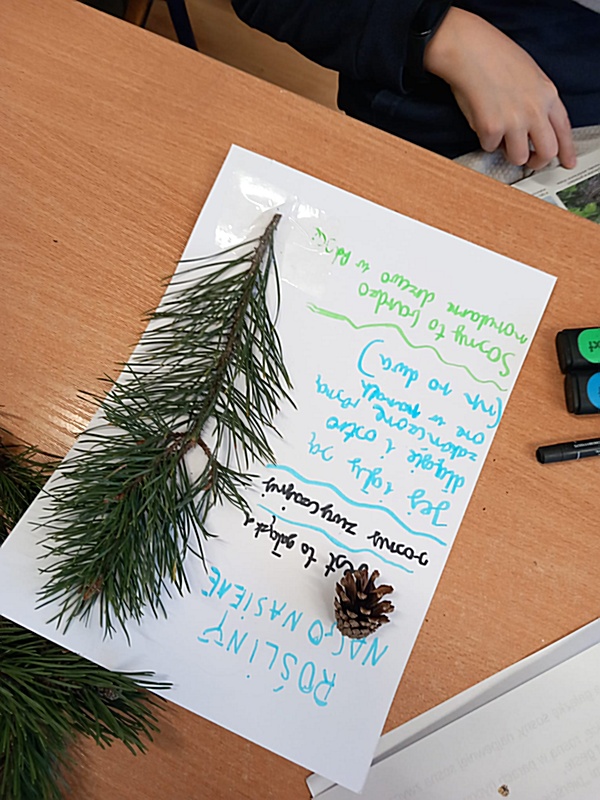 ROŚLINY
NAGONASIENNE
Jest to gałązka
sosny zwyczajnej
Jej igły są
długie i ostro
zakończone rosną
one w parach
(np. po dwa)
Sosny to bardzo
popularne drzewo w Polsce